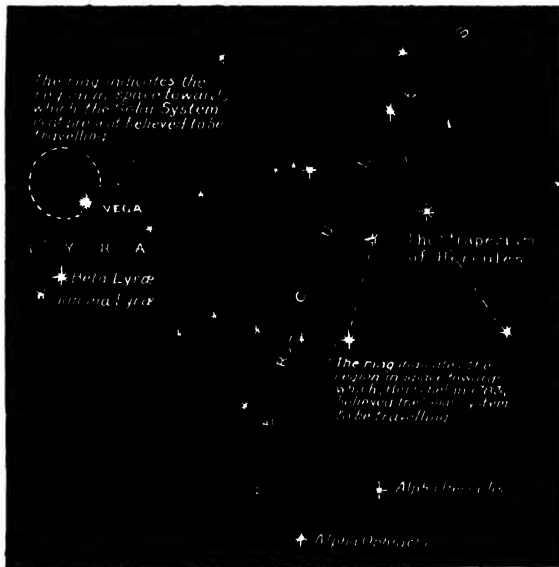 The ring indicates the
region in space towards
which the Solar System
is at present believed to be
travelling
VEGA
L Y R A
Beta Lyræ
Gamma Lyræ
H E R C U L E S
The Trapezium
of Hercules
The ring indicates the
region in space towards
which, Herschel in 1783,
believed the Solar System
to be travelling
Alpha Herculis
Alpha Ophiuchi